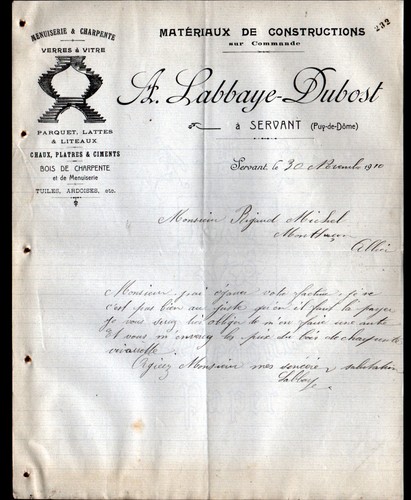 MENUISERIE & CHARPENTE
VERRES à VITRE
PARQUET, LATTES
& LITEAUX
CHAUX, PLATRES & CIMENTS
BOIS DE CHARPENTE
et de Menuiserie
TUILES, ARDOISES, etc.
MATÉRIAUX DE CONSTRUCTIONS
232
sur Commande
A. Labbaye-Dubost
à SERVANT (Puy-de-Dôme)
Servant, le 30 Novembre 1910
Monsieur Rigaud Michel
Montluçon
Allier
Monsieur j'ai égarer votre facture je ne
c'est pas bien au juste qu'en il faut la payer
Je vous serez bien obliger de m'en faire une autre
Et vous m'enverrez les prix du bois de charpente
Agréez Monsieur mes sincères salutation
Labbaye